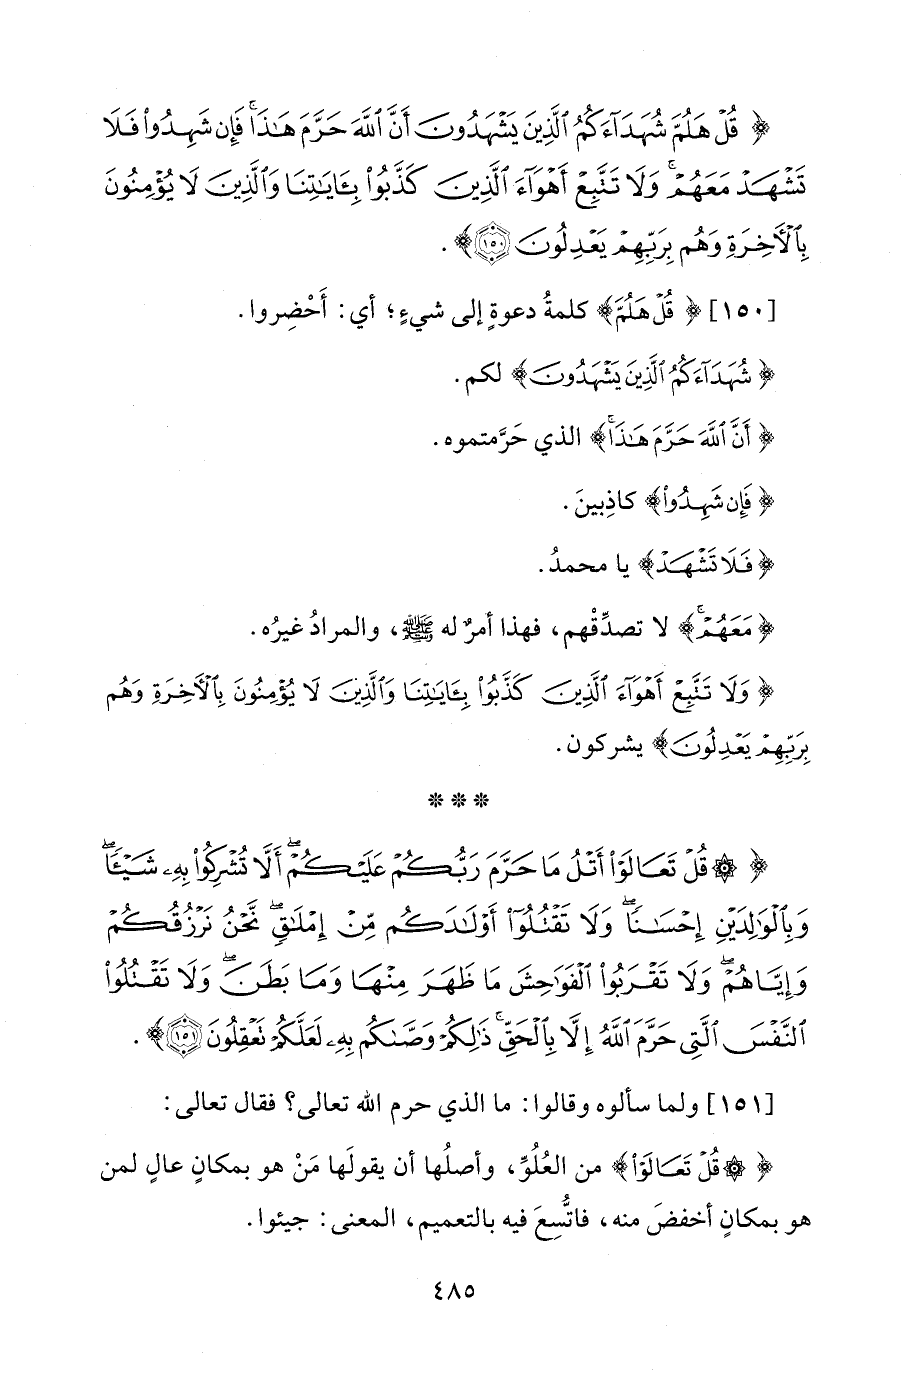 ﴿ قُلْ هَلُمَّ شُهَدَآءَكُمُ ٱلَّذِينَ يَشْهَدُونَ أَنَّ ٱللَّهَ حَرَّمَ هَـٰذَاۖ فَإِن شَهِدُوا۟ فَلَا
تَشْهَدْ مَعَهُمْۚ وَلَا تَتَّبِعْ أَهْوَآءَ ٱلَّذِينَ كَذَّبُوا۟ بِـَٔايَـٰتِنَا وَٱلَّذِينَ لَا يُؤْمِنُونَ
بِٱلْـَٔاخِرَةِ وَهُم بِرَبِّهِمْ يَعْدِلُونَ ١٥٠ ﴾ .
[١٥٠] ﴿ قُلْ هَلُمَّ ﴾ كلمةُ دعوةٍ إلى شيءٍ؛ أي: أَحْضِروا.
﴿ شُهَدَآءَكُمُ ٱلَّذِينَ يَشْهَدُونَ ﴾ لكم.
﴿ أَنَّ ٱللَّهَ حَرَّمَ هَـٰذَاۖ ﴾ الذي حَرَّمتموه.
﴿ فَإِن شَهِدُوا۟ ﴾ كاذِبينَ.
﴿ فَلَا تَشْهَدْ ﴾ يا محمدُ.
﴿ مَعَهُمْۚ ﴾ لا تصدِّقْهم، فهذا أمرٌ له ﷺ، والمرادُ غيرُه.
﴿ وَلَا تَتَّبِعْ أَهْوَآءَ ٱلَّذِينَ كَذَّبُوا۟ بِـَٔايَـٰتِنَا وَٱلَّذِينَ لَا يُؤْمِنُونَ بِٱلْـَٔاخِرَةِ وَهُم
بِرَبِّهِمْ يَعْدِلُونَ ﴾ يشركون.
* * *
﴿ ۞ قُلْ تَعَالَوْا۟ أَتْلُ مَا حَرَّمَ رَبُّكُمْ عَلَيْكُمْۖ أَلَّا تُشْرِكُوا۟ بِهِۦ شَيْـًٔاۖ
وَبِٱلْوَٰلِدَيْنِ إِحْسَـٰنًاۖ وَلَا تَقْتُلُوٓا۟ أَوْلَـٰدَكُم مِّنْ إِمْلَـٰقٍۖ نَّحْنُ نَرْزُقُكُمْ
وَإِيَّاهُمْۖ وَلَا تَقْرَبُوا۟ ٱلْفَوَٰحِشَ مَا ظَهَرَ مِنْهَا وَمَا بَطَنَۖ وَلَا تَقْتُلُوا۟
ٱلنَّفْسَ ٱلَّتِى حَرَّمَ ٱللَّهُ إِلَّا بِٱلْحَقِّۚ ذَٰلِكُمْ وَصَّىٰكُم بِهِۦ لَعَلَّكُمْ تَعْقِلُونَ ١٥١ ﴾ .
[١٥١] ولما سألوه وقالوا: ما الذي حرم الله تعالى؟ فقال تعالى:
﴿ ۞ قُلْ تَعَالَوْا۟ ﴾ من العُلُوِّ، وأصلُها أن يقولَها مَنْ هو بمكانٍ عالٍ لمن
هو بمكانٍ أخفضَ منه، فاتُّسِعَ فيه بالتعميم، المعنى: جيئوا.
٤٨٥